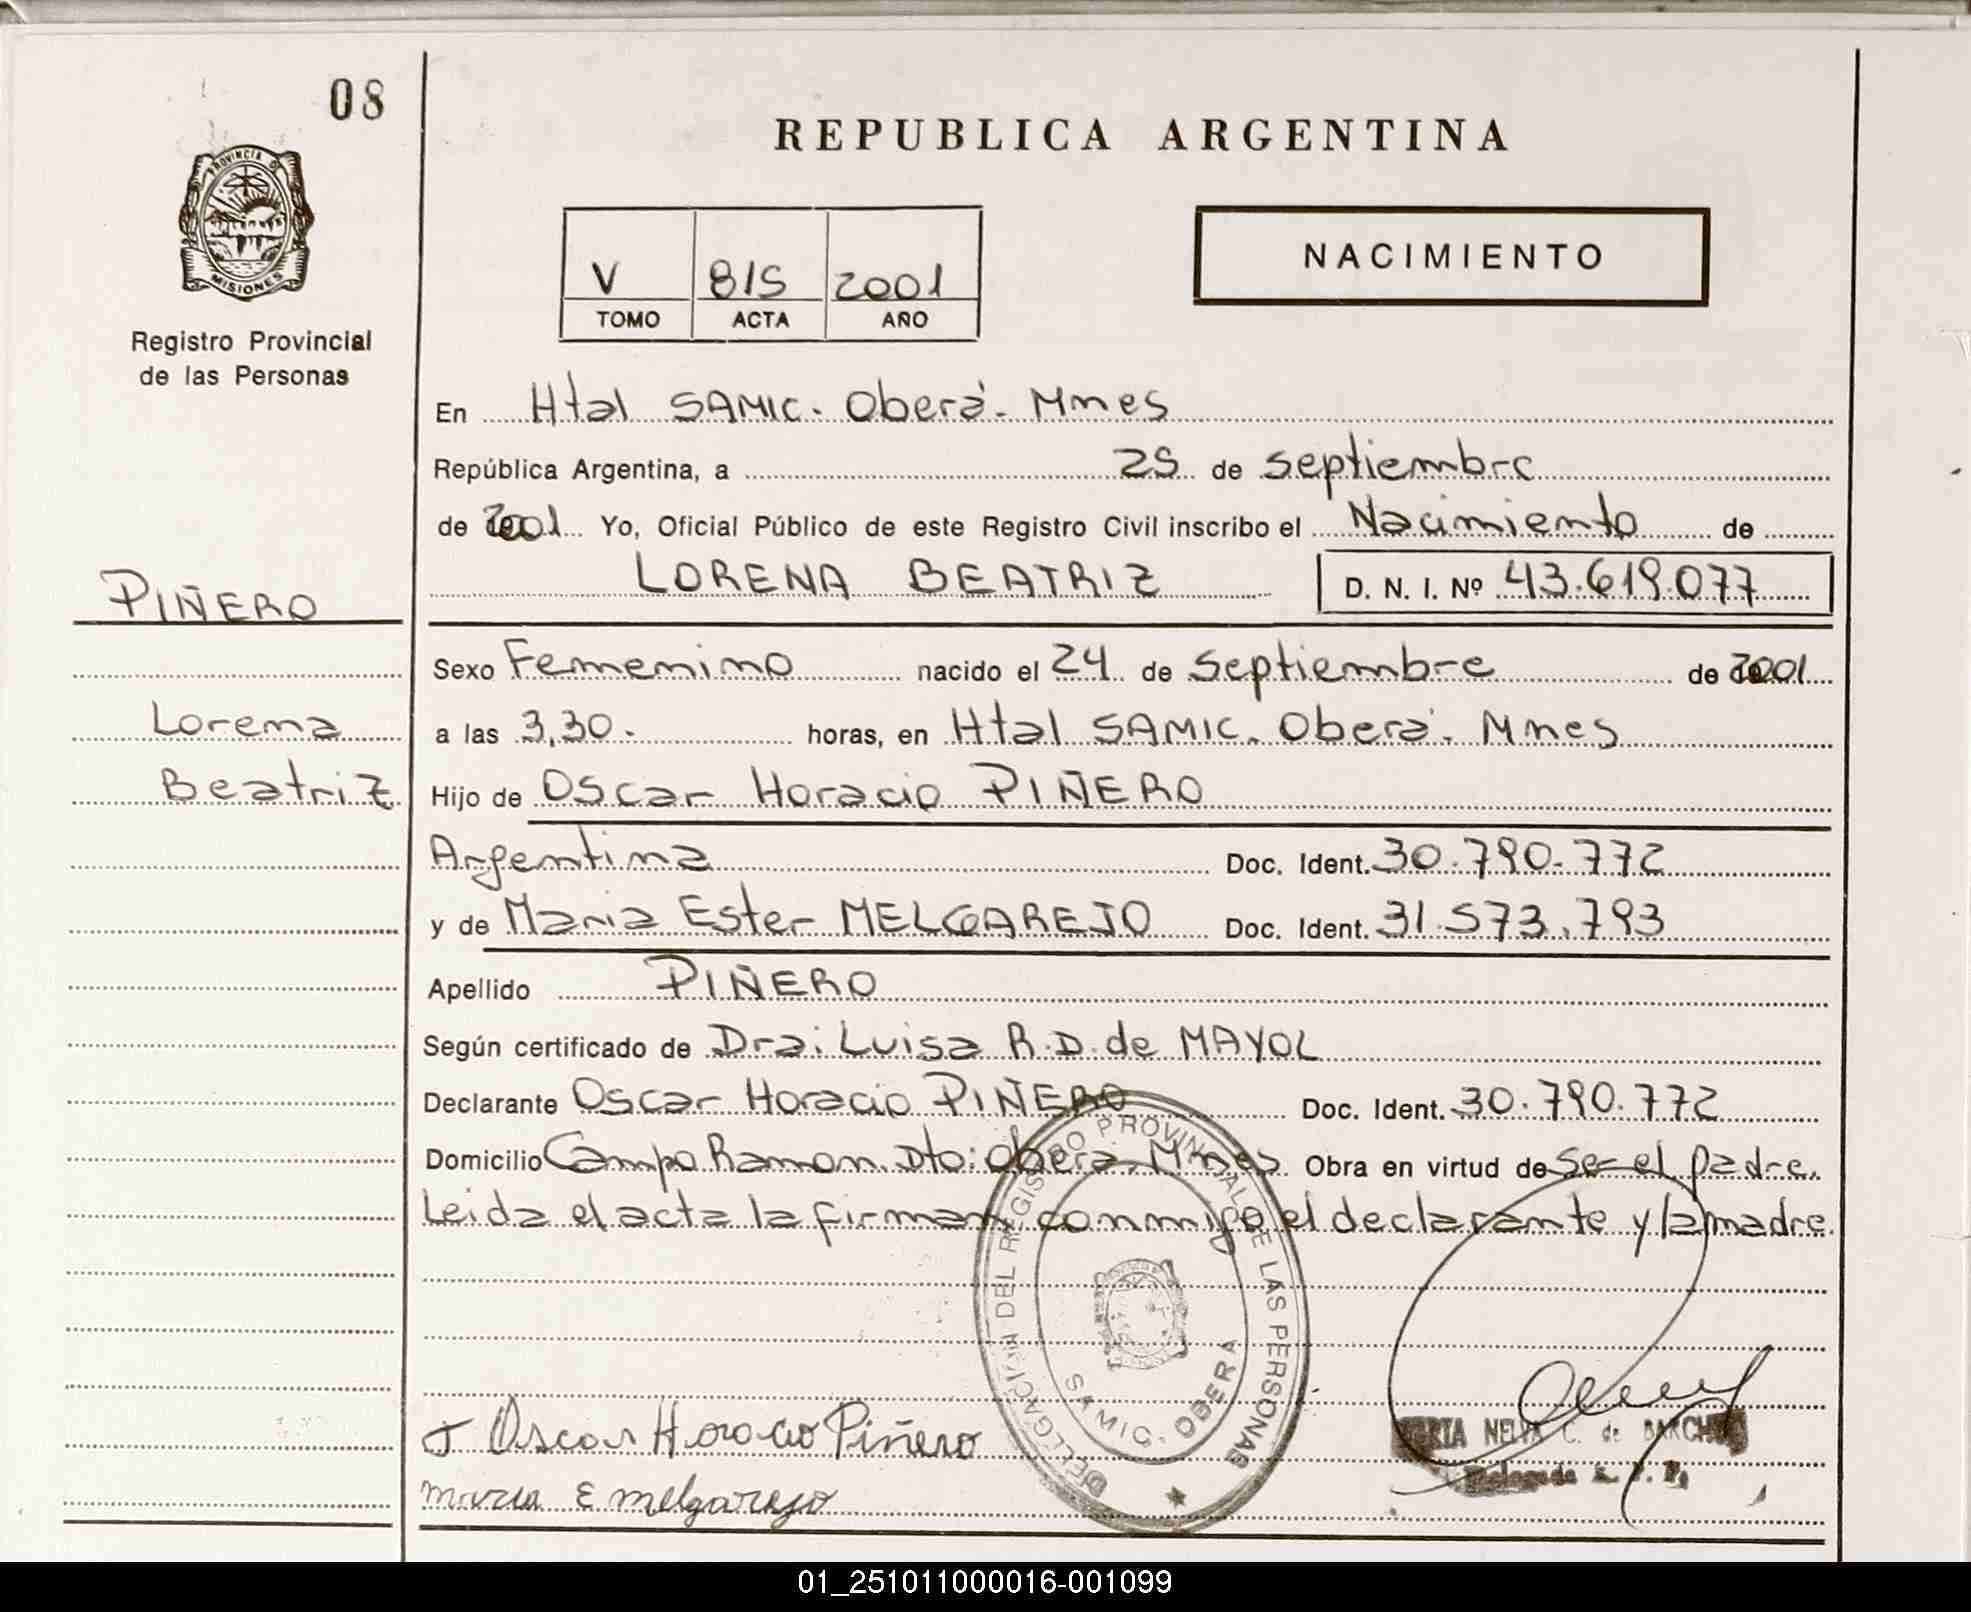 08
REPUBLICA ARGENTINA
PROVINCIA DE
MISIONES
Registro Provincial
de las Personas
NACIMIENTO
V 815 2001
TOMO ACTA AÑO
En Htal SAMIC. Oberá. Mnes
República Argentina, a 25 de septiembre
de 2001 Yo, Oficial Público de este Registro Civil inscribo el Nacimiento de
LORENA BEATRIZ D. N. I. Nº 43.619.077
PIÑERO
Lorena
Beatriz
Sexo Femenino nacido el 24 de septiembre de 2001
a las 3,30. horas, en Htal SAMIC. Oberá. Mnes
Hijo de Oscar Horacio PIÑERO
Argentina Doc. Ident. 30.790.772
y de Maria Ester MELGAREJO Doc. Ident. 31.573.793
Apellido PIÑERO
Según certificado de Dra: Luisa R.D. de MAYOL
Declarante Oscar Horacio PIÑERO Doc. Ident. 30.790.772
Domicilio Campo Ramon Dto: Oberá. Mnes Obra en virtud de ser el padre.
Leida el acta la firman conmigo el declarante y la madre.
DELEGACION DEL REGISTRO PROVINCIAL DE LAS PERSONAS
SAMIC. OBERA
Oscar Horacio Piñero
maria E melgarejo
NELVA C. de
Delegada R. P. P.
01_251011000016-001099